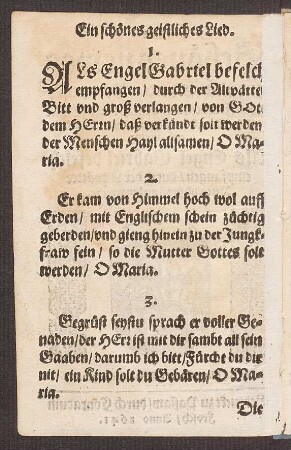 Ein schönes geistliches Lied.
1.
ALs Engel Gabriel befelch
empfangen/ durch der Altvätter
Bitt und groß verlangen/ von GOt
dem HErrn/ daß verkündt solt werden
der Menschen Hayl allsamen/ O Ma-
ria.
2.
Er kam von Himmel hoch wol auff
Erden/ mit Englischem schein züchtig
geberden/ und gieng hinein zu der Jungk-
fraw fein/ so die Mutter Gottes solt
werden/ O Maria.
3.
Gegrüst seystu sprach er voller Ge-
naden/ der HErr ist mit dir sambt all sein
Gaaben/ darumb ich bitt/ Fürcht du dir
nit/ ein Kind solt du Gebären/ O Ma-
ria.
Die